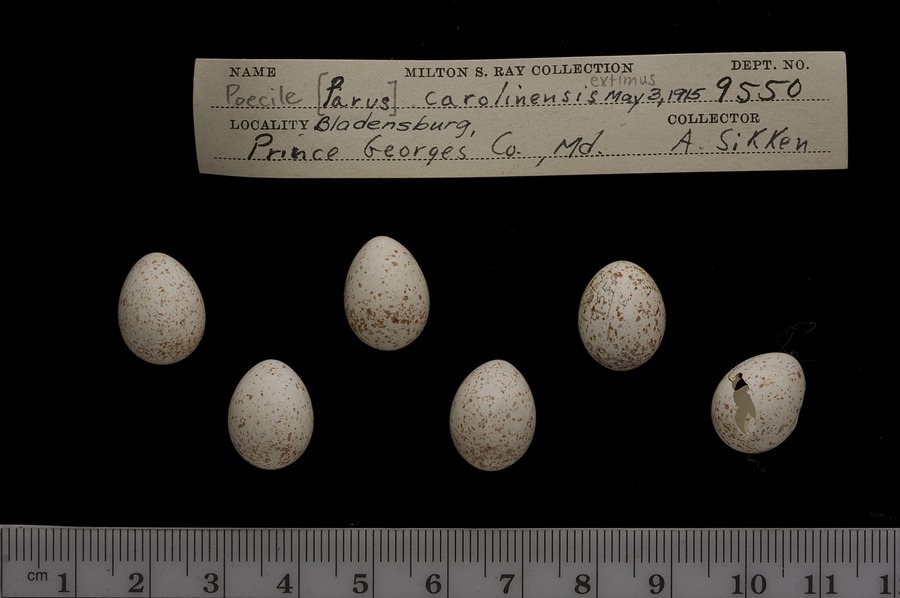 NAME MILTON S. RAY COLLECTION DEPT. NO.
extimus
Poecile [Parus] carolinensis May 3, 1915 9550
LOCALITY Bladensburg, COLLECTOR
Prince Georges Co., Md. A. Sikken
cm 1 2 3 4 5 6 7 8 9 10 11 1